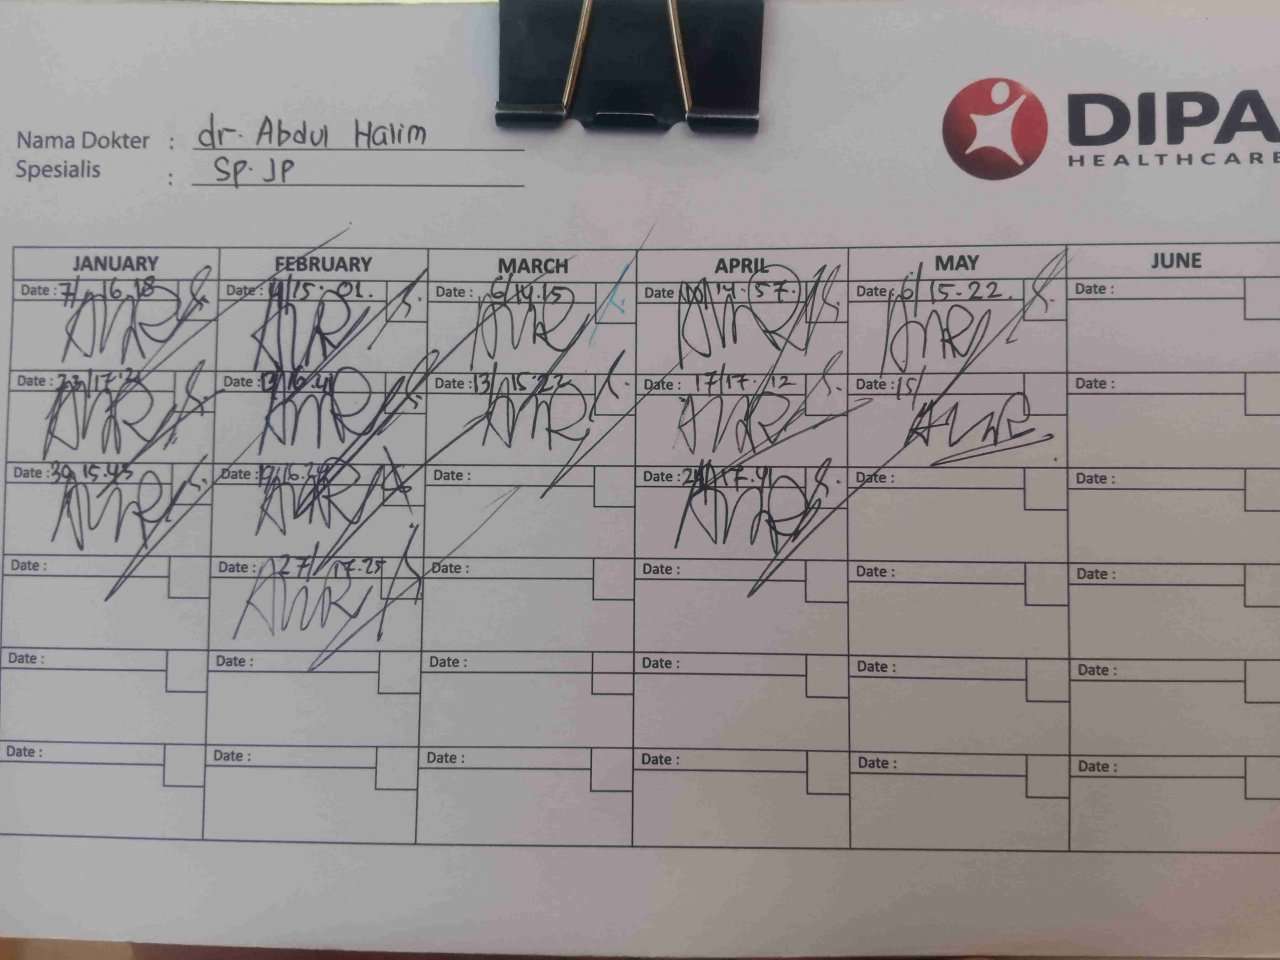 DIPA
HEALTHCARE
Nama Dokter : dr. Abdul Halim
Spesialis : Sp. JP
JANUARY FEBRUARY MARCH APRIL MAY JUNE
Date : 7/ 16.18 Date : 4/15.01. Date : 6/14.15 Date : 14.57. Date : 6/15.22. Date :
Date : 23/17. Date : 13/16. Date : 13/15.22 Date : 17/17.12 Date : 15/ Date :
Date : 30 15.45 Date : 19/16. Date : Date : 17.41 Date : Date :
Date : Date : 27/17.25 Date : Date : Date : Date :
Date : Date : Date : Date : Date : Date :
Date : Date : Date : Date : Date : Date :